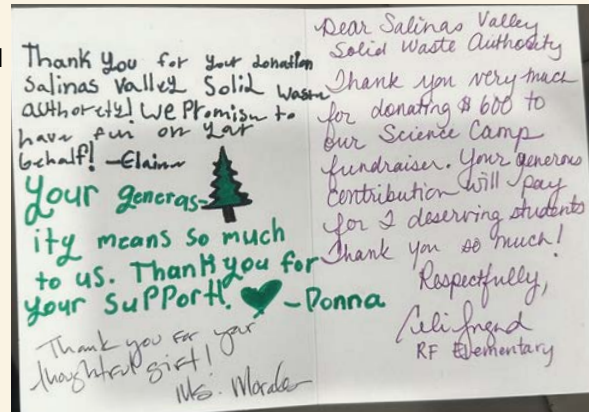 Thank you for your donation
Salinas Valley Solid Waste
authorety! We Promise to
have fun on your
behalf! -Elaine
Your generos-
ity means so much
to us. Thank you for
your support! -Donna
Thank you for your
thoughtful gift!
Ms. Morales
Dear Salinas Valley
Solid Waste Authority
Thank you very much
for donating $600 to
our Science Camp
fundraiser. Your generous
contribution will pay
for 2 deserving students
Thank you so much!
Respectfully,
RF Elementary